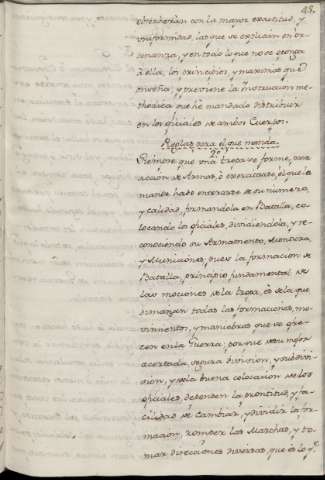 48.
observarán con la mayor exactitud, y
uniformidad, las que se explican en or-
denanza, y en todo lo que no se oponga
à ella, los principios, y maximas que
enseña, y previene la instruccion me-
thodica que hé mandado distribuir
en los oficiales de ambos Cuerpos.
Reglas para el que manda.
Siempre que una tropa se forme, para
accion de Armas, ò exercitarse, el que la
mande hade enterarse de su numero,
y calidad, formandola en Batalla, co-
locando los oficiales, dividiendola, y re-
conociendo su Armamento,
y Municiones, pues la formacion de
Batalla, principio fundamental de
las mociones de la tropa, es de la que
dimanan todas las formaciones, mo-
vimientos, y maniobras que se ofre-
cen en la Guerra, porque de su mas
acertada, segura division, y subdivi-
sion, y de la buena colocacion de los
oficiales dependen la prontitud, y fa-
cilidad de cambiar, y dividir la for-
macion, romper las Marchas, y to-
mar direcciones diversas, que es lo q.e